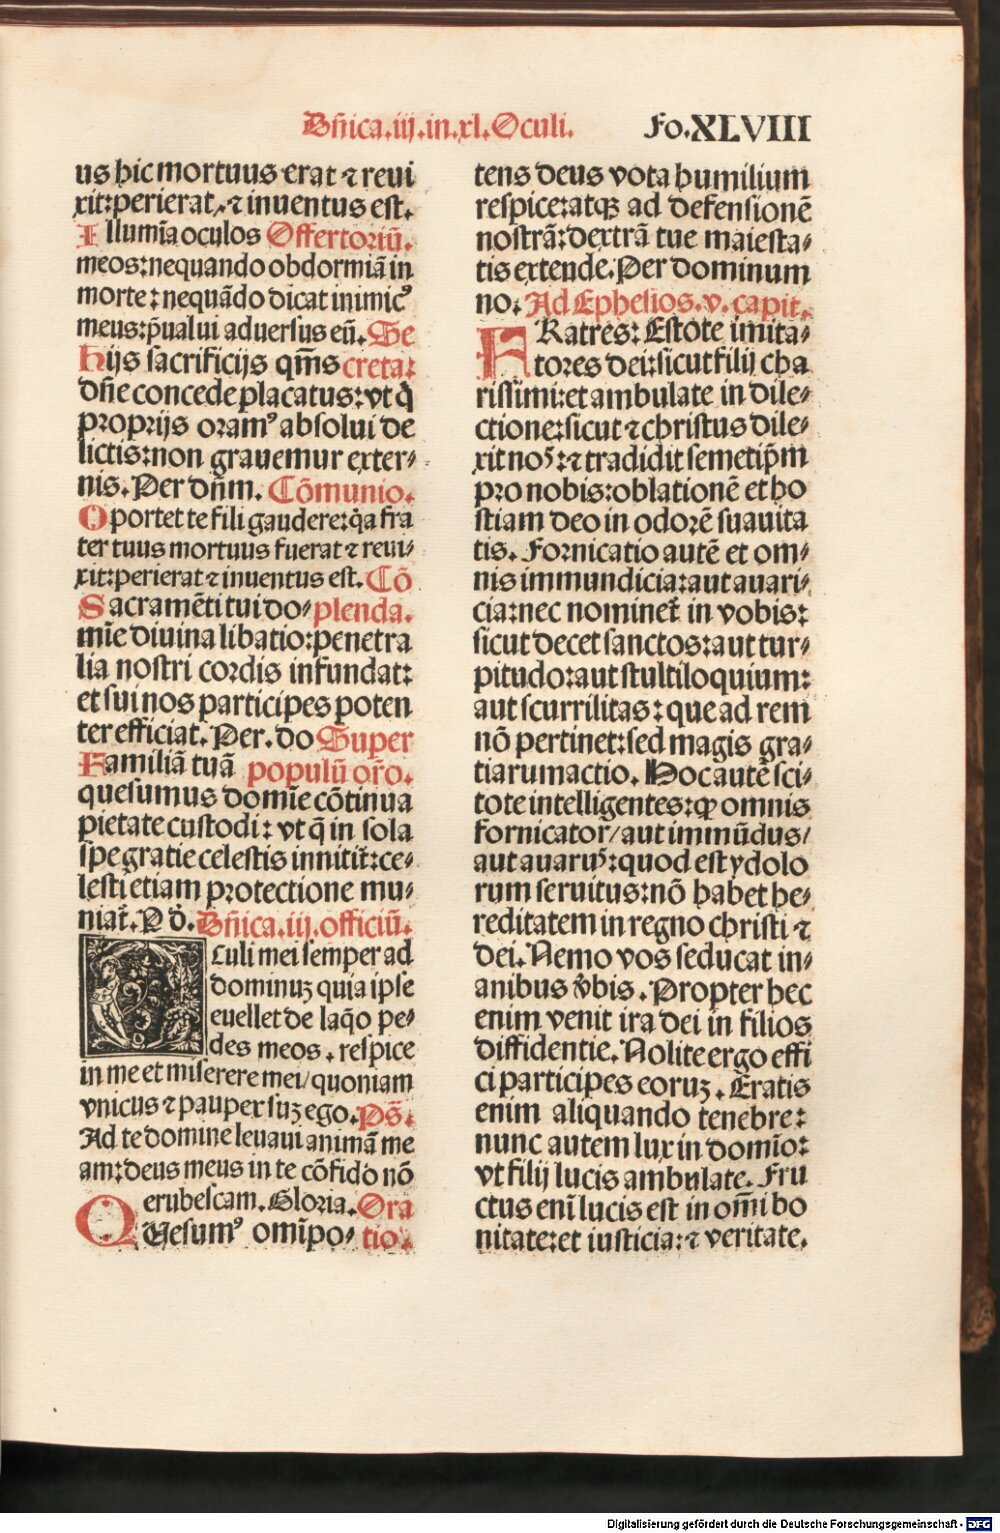 Dñica.iij.in.xl.Oculi. Fo.XLVIII
us hic mortuus erat ⁊ reui
xit:perierat,⁊ inuentus est.
Illumīa oculos Offertoriū.
meos:nequando obdormiā in
morte: nequādo dicat inimicꝰ
meus:p̄ualui aduersus eū. Se
hijs sacrificijs qm̄s creta:
dñe concede placatus:vt q̄
proprijs oramꝰ absolui de
lictis:non grauemur exter⸗
nis. Per dn̄m. Cōmunio.
Oportet te fili gaudere:q̄a fra
ter tuus mortuus fuerat ⁊ reui⸗
xit:perierat ⁊ inuentus est. Cō
Sacramēti tui do⸗ plenda.
mīe diuina libatio:penetra
lia nostri cordis infundat:
et sui nos participes poten
ter efficiat. Per. do Super
Familiā tuā populū or̄o.
quesumus domīe cōtinua
pietate custodi: vt q̄ in sola
spe gratie celestis innitit̄:ce⸗
lesti etiam protectione mu⸗
niat̄. P d̄. Dñica.iij.officiū.
Oculi mei semper ad
dominuꝫ quia ipse
euellet de laq̄o pe⸗
des meos. respice
in me et miserere mei/quoniam
vnicus ⁊ pauper suꝫ ego. Ps̄.
Ad te domine leuaui animā me
am:deus meus in te cōfido nō
erubescam. Gloria. Ora
QVesumꝰ omīpo⸗ tio.
tens deus vota humilium
respice:atqꝫ ad defensionē
nostrā:dextrā tue maiesta⸗
tis extende. Per dominum
no. Ad Ephesios.v.capit.
FRatres: Estote imita⸗
tores dei:sicut filij cha
rissimi:et ambulate in dile⸗
ctione:sicut ⁊ christus dile⸗
xit noꝰ:⁊ tradidit semetip̄m
pro nobis:oblationē et ho
stiam deo in odorē suauita
tis. Fornicatio autē et om⸗
nis immundicia:aut auari⸗
cia:nec nominet̄ in vobis:
sicut decet sanctos:aut tur⸗
pitudo:aut stultiloquium:
aut scurrilitas: que ad rem
nō pertinet:sed magis gra⸗
tiarum actio. Hoc autē sci⸗
tote intelligentes:ꝙ omnis
fornicator/aut immūdus/
aut auarꝰ:quod est ydolo
rum seruitus:nō habet he⸗
reditatem in regno christi ⁊
dei. Nemo vos seducat in⸗
anibus v̄bis. Propter hec
enim venit ira dei in filios
diffidentie. Nolite ergo effi
ci participes eoruꝫ. Eratis
enim aliquando tenebre:
nunc autem lux in domīo:
vt filij lucis ambulate. Fru
ctus eni lucis est in om̄i bo
nitate:et iusticia:⁊ veritate.
Digitalisierung gefördert durch die Deutsche Forschungsgemeinschaft - DFG